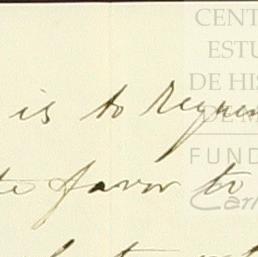 CENT
ESTU
DE HIS
is to reques
DE M
FUND
te favor to
Carl